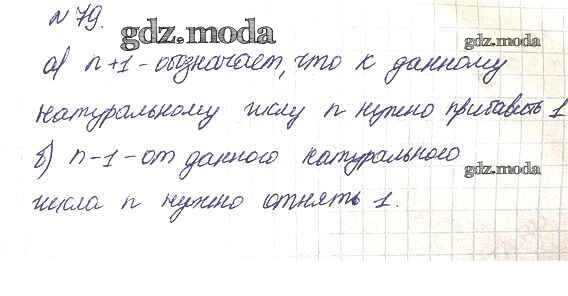 N 79.
gdz.moda
gdz.moda
а) n+1 - обозначает, что к данному
натуральному числу n нужно прибавить 1
б) n-1 - от данного натурального
gdz.moda
числа n нужно отнять 1.